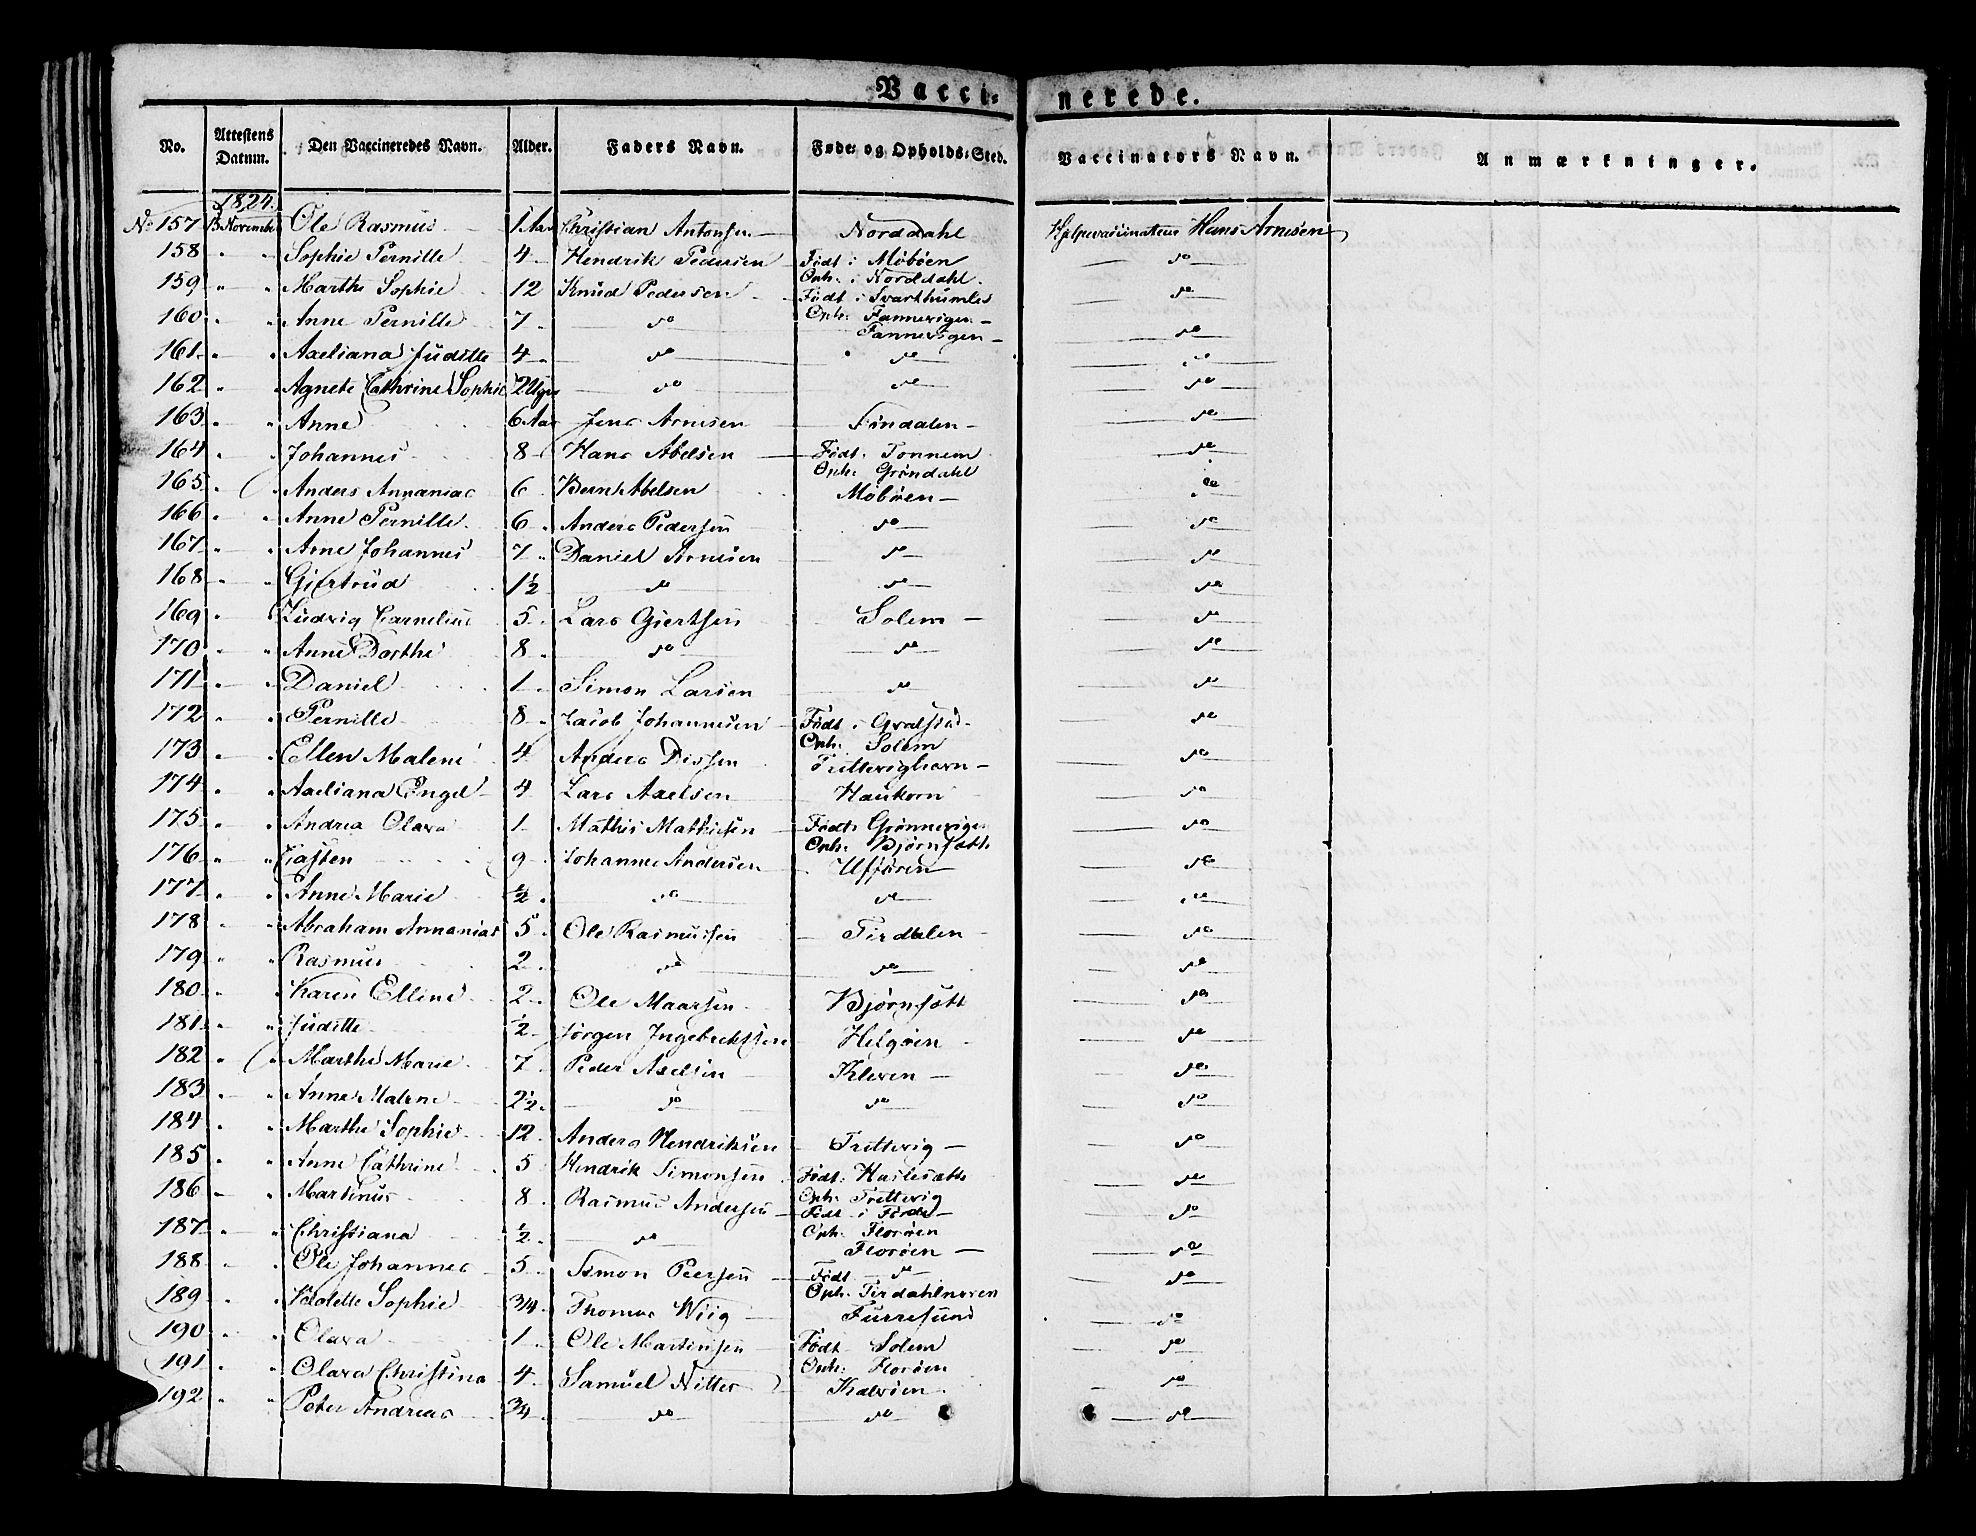 Vacci- nerede.
No. Attestens Datum. Den Vaccineredes Navn. Alder. Faders Navn. Føde- og Opholds-Sted. Vaccinators Navn. Anmærkninger.
1824.
No 157 Ole Rasmus 1 Aar Christian Antonsen Norddahl Hjelpevaccinateur Hans Arnesen
158 " " Sophie Pernille 4 Hendrik Pedersen Født i Møböen do
Oph: i Norddahl
159 " " Marthe Sophie 12 Knud Pedersen Født i Svarthumle do
Oph:
160 " " Anne Pernille 7 do Fannevigen do
161 " " Axeliana Juditte 4 do do do
162 " " Agnete Cathrine Sophie do do do
163 " " Anne 6 Aar Jens Arnesen do
164 " " Johannes 8 Hans Abelsen Født: Tonnem do
Oph: Gröndahl
165 " " Anders Annanias 6 Bernt Abelsen Møböen do
166 " " Anne Pernille 6 Anders Pedersen do do
167 " " Arne Johannes 7 Daniel Arnesen do do
168 " " Giertrud 1½ do do do
169 " " Ludvig Cornelius 5 Lars Giertsen Solem do
170 " " Anne Dorthe 8 do do do
171 " " Daniel 1 Simon Larsen do do
172 " " Pernille 8 Jacob Johannesen Født i do
Oph: Solem
173 " " Ellen Malene 4 Anders do
174 " " Axeliana Engel 4 Lars Axelsen Haukorn do
175 " " Andrea Olava 1 Mathis Mathisen Født: Grönnevigen do
Oph: Björnsætt
176 " " Casten 9 Johannes Andersen do
177 " " Anne Marie ½ do do do
178 " " Abraham Annanias 5 Ole Rasmussen Tirdalen do
179 " " Rasmus 2 do do do
180 " " Karen Elline 2 Ole Maarsen Björnsött do
181 " " Juditte ½ Jörgen Ingebrechtsen Helgöen do
182 " " Marthe Marie 7 Peder Axelsen Kleven do
183 " " Anne Malene 2½ do do do
184 " " Marthe Sophie 12 Anders Hendriksen Trettevig do
185 " " Anne Cathrine 5 Hendrik Simonsen Født: Haslesætte do
Oph: Trettevig
186 " " Martinus 8 Rasmus Andersen Født i Förde do
Oph: Floröen
187 " " Christiana ½ do Floröen do
188 " " Ole Johannes 5 Simon Peersen Født do do
Oph: Tirdahlnoren
189 " " Violette Sophie 3/4 Thomas Wiig Furresund do
190 " " Olava 1 Ole Martinsen Født Solem do
Oph: Floröen
191 " " Olava Christina 4 Samuel Nitter Kalvöen do
192 " " Peter Andreas 3/4 do do do